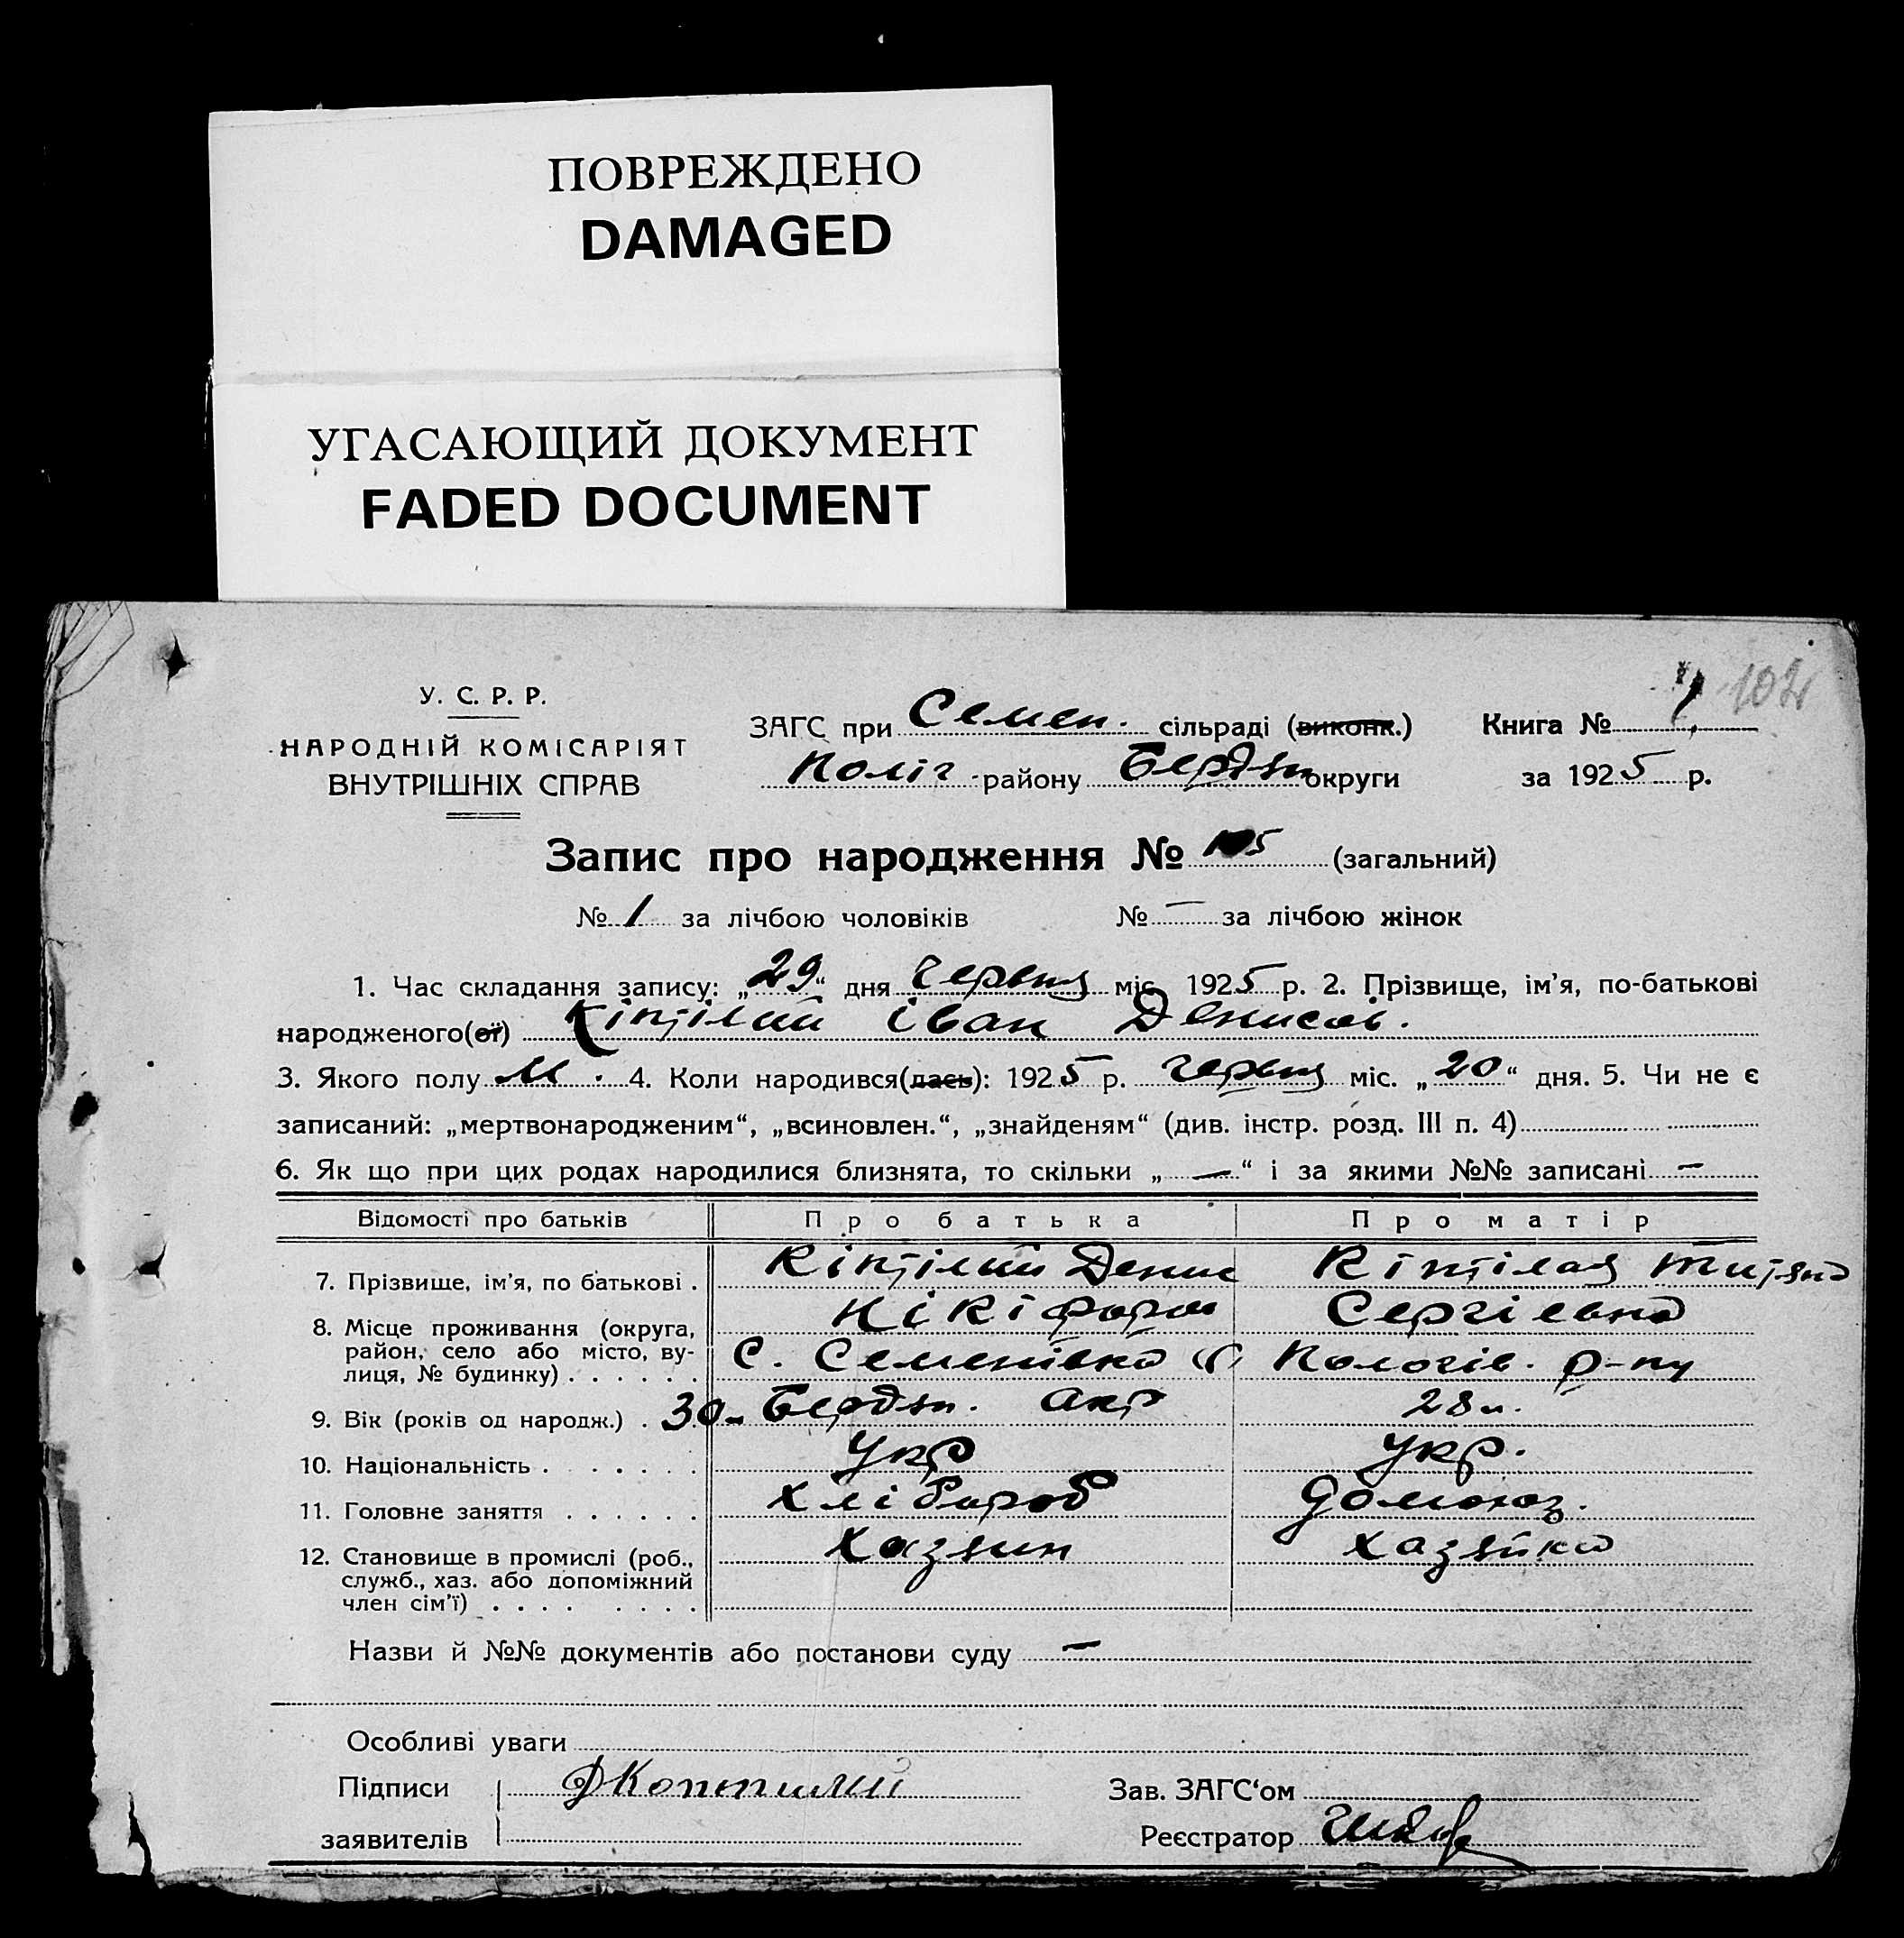 ПОВРЕЖДЕНО
DAMAGED
УГАСАЮЩИЙ ДОКУМЕНТ
FADED DOCUMENT
102
У. С. Р. Р.
НАРОДНІЙ КОМІСАРІЯТ
ВНУТРІШНІХ СПРАВ
ЗАГС при Семен. сільраді (виконк.) Книга №
Поліг. району Бердян округи за 1925 р.
Запис про народження № 105 (загальний)
№ 1 за лічбою чоловіків № — за лічбою жінок
1. Час складання запису: „29“ дня червня міс. 1925 р. 2. Прізвище, ім’я, по-батькові
народженого(ої) Кіптілий Іван Денисов.
3. Якого полу М. 4. Коли народився(лась): 1925 р. червня міс. „20“ дня. 5. Чи не є
записаний: „мертвонародженим“, „всиновлен.“, „знайденям“ (див. інстр. розд. III п. 4)
6. Як що при цих родах народилися близнята, то скільки „—“ і за якими №№ записані —
Відомості про батьків Про батька Про матір
7. Прізвище, ім’я, по батькові . Кіптілий Денис Кіптілая Титяна
Нікіфоров Сергієвна
8. Місце проживання (округа, район, село або місто, вулиця, № будинку) . . . . . . с. Семенівка Пологів. р-ну
9. Вік (років од народж.) . 30 Бердян. окр 28 л.
10. Національність . . . . . . Укр Укр.
11. Головне заняття . . . . . . Хлібороб Домохоз.
12. Становище в промислі (роб., служб., хаз. або допоміжний член сім’ї) . . . . . . . . Хазяин Хазяйка
Назви й №№ документів або постанови суду —
Особливі уваги
Підписи ДКоптилий Зав. ЗАГС‘ом
заявителів Реєстратор